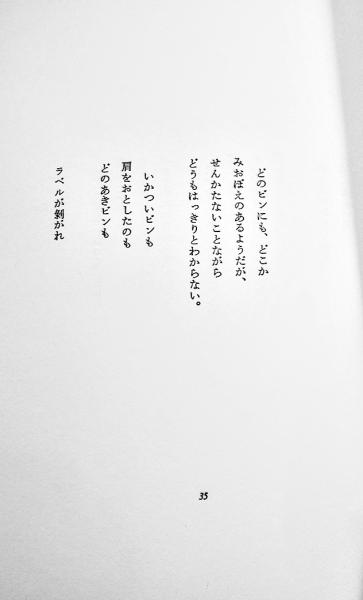 どのビンにも、どこか
みおぼえのあるようだが、
せんかたないことながら
どうもはっきりとわからない。
いかついビンも
肩をおとしたのも
どのあきビンも
ラベルが剝がれ
35